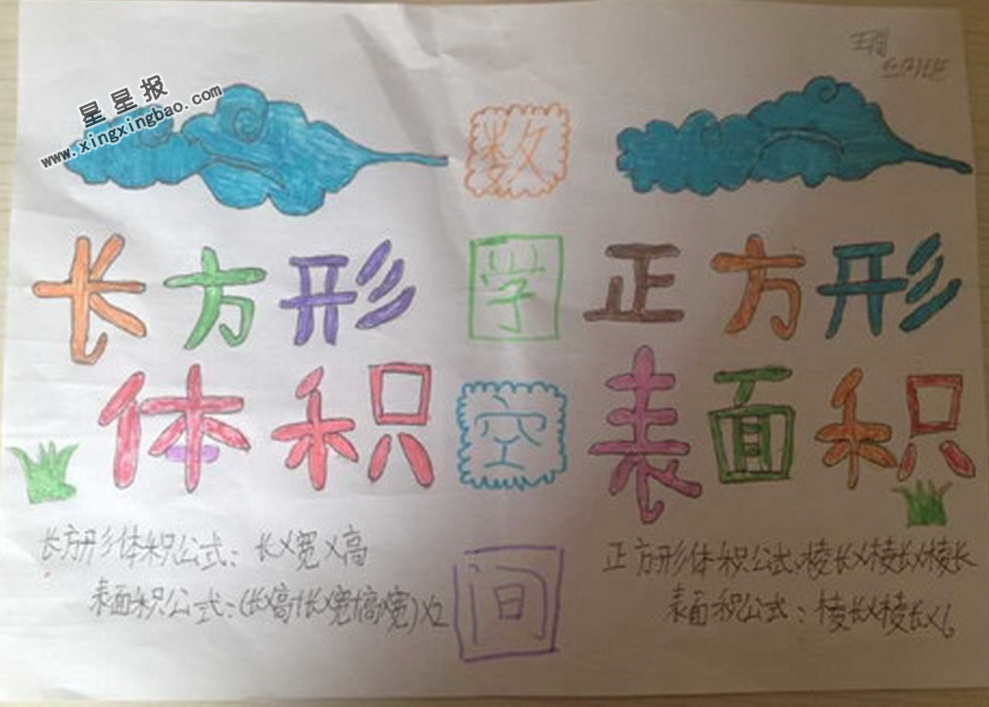 星星报
www.xingxingbao.com
数学空间
长方形
体积
正方形
表面积
长方形体积公式：长×宽×高
表面积公式：(长×高+长×宽+高×宽)×2
正方形体积公式：棱长×棱长×棱长
表面积公式：棱长×棱长×6